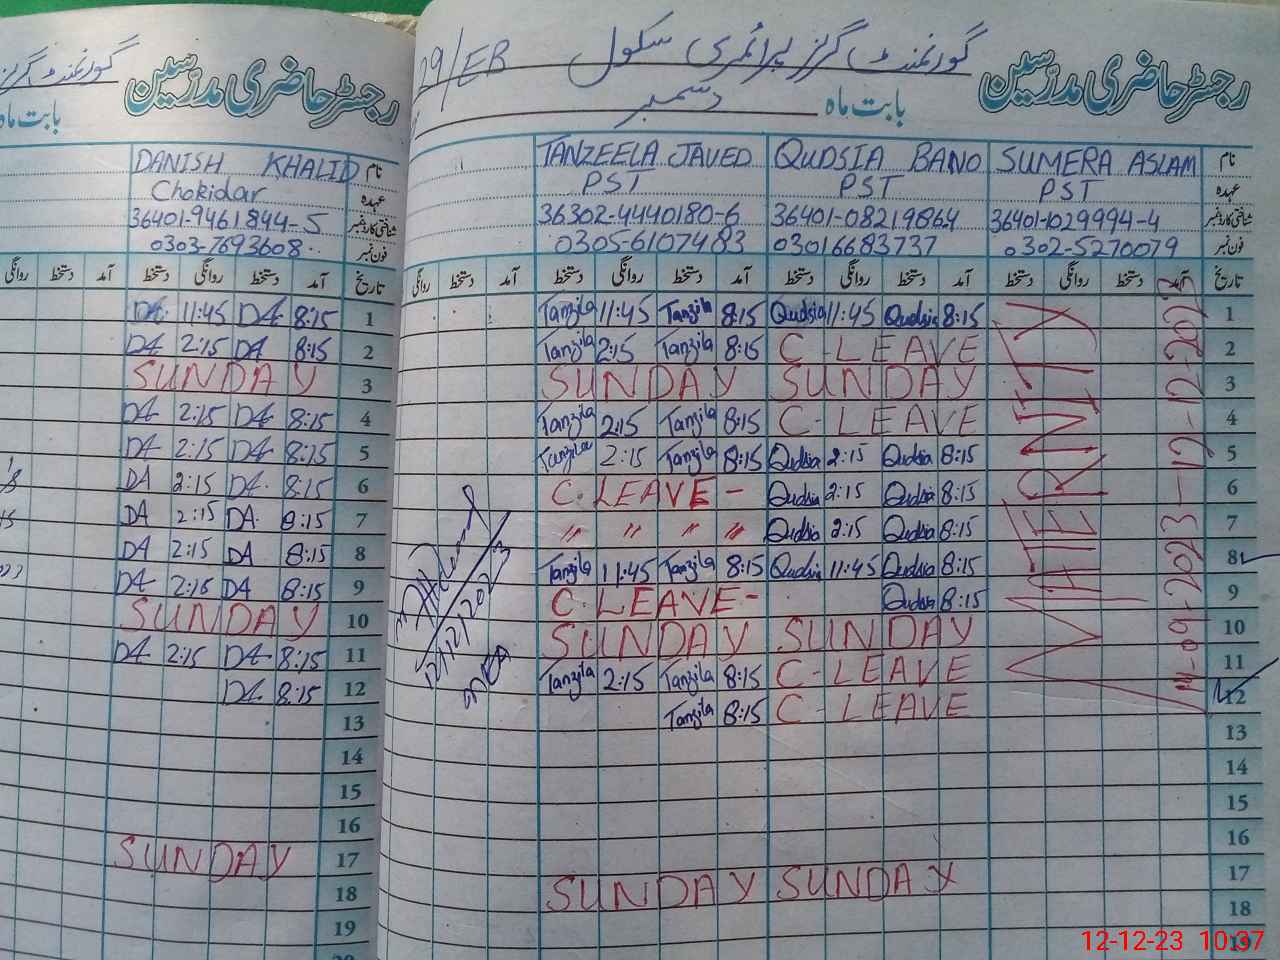 گورنمنٹ گرلز
رجسٹر حاضری مدرسین
بابت ماہ
DANISH KHALID نام
Chokidar عہدہ
36401-9461844-5 شناختی کارڈ نمبر
0303-7693608 فون نمبر
روانگی دستخط آمد دستخط روانگی دستخط آمد تاریخ
DA 11:45 DA 8:15 1
DA 2:15 DA 8:15 2
SUNDAY 3
DA 2:15 DA 8:15 4
DA 2:15 DA 8:15 5
DA 2:15 DA 8:15 6
DA 2:15 DA 8:15 7
DA 2:15 DA 8:15 8
DA 2:15 DA 8:15 9
SUNDAY 10
DA 2:15 DA 8:15 11
DA 8:15 12
13
14
15
16
SUNDAY 17
18
19
29/EB گورنمنٹ گرلز پرائمری سکول رجسٹر حاضری مدرسین
بابت ماہ دسمبر
TANZEELA JAVED QUDSIA BANO SUMERA ASLAM نام
PST PST PST عہدہ
36302-4440180-6 36401-08219864 36401-1029994-4 شناختی کارڈ نمبر
0305-6107483 03016683737 0302-5270079 فون نمبر
روانگی دستخط آمد دستخط روانگی دستخط آمد دستخط روانگی دستخط آمد دستخط روانگی دستخط آمد تاریخ
Tanzila 11:45 Tanzila 8:15 Qudsia 11:45 Qudsia 8:15 1
Tanzila 2:15 Tanzila 8:15 C-LEAVE 2
SUNDAY SUNDAY 3
Tanzila 2:15 Tanzila 8:15 C-LEAVE 4
Tanzila 2:15 Tanzila 8:15 Qudsia 2:15 Qudsia 8:15 5
C. LEAVE - Qudsia 2:15 Qudsia 8:15 6
" " " " Qudsia 2:15 Qudsia 8:15 7
Tanzila 11:45 Tanzila 8:15 Qudsia 11:45 Qudsia 8:15 8
C. LEAVE - Qudsia 8:15 9
SUNDAY SUNDAY 10
Tanzila 2:15 Tanzila 8:15 C-LEAVE 11
Tanzila 8:15 C-LEAVE 12
13
14
15
16
SUNDAY SUNDAY 17
18
MATERNITY
12/12/2023
MEA
12-12-23 10:37